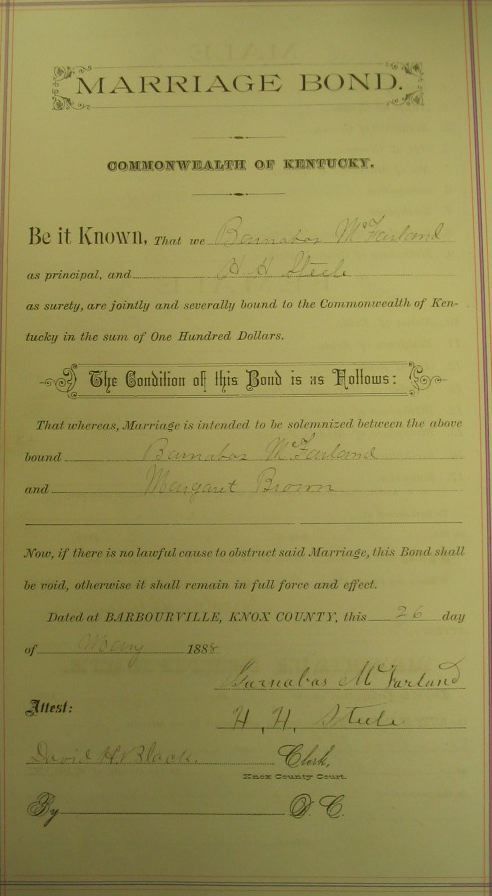 MARRIAGE BOND.
COMMONWEALTH OF KENTUCKY.
Be it Known, That we Barnabas McFarland
as principal, and H H Steele
as surety, are jointly and severally bound to the Commonwealth of Ken-
tucky in the sum of One Hundred Dollars.
The Condition of this Bond is as Follows:
That whereas, Marriage is intended to be solemnized between the above
bound Barnabas McFarland
and Margaret Brown
Now, if there is no lawful cause to obstruct said Marriage, this Bond shall
be void, otherwise it shall remain in full force and effect.
Dated at BARBOURVILLE, KNOX COUNTY, this 26 day
of May 1888
Barnabas McFarland
Attest:
H, H, Steele
David H. Black. Clerk,
Knox County Court.
By D. C.